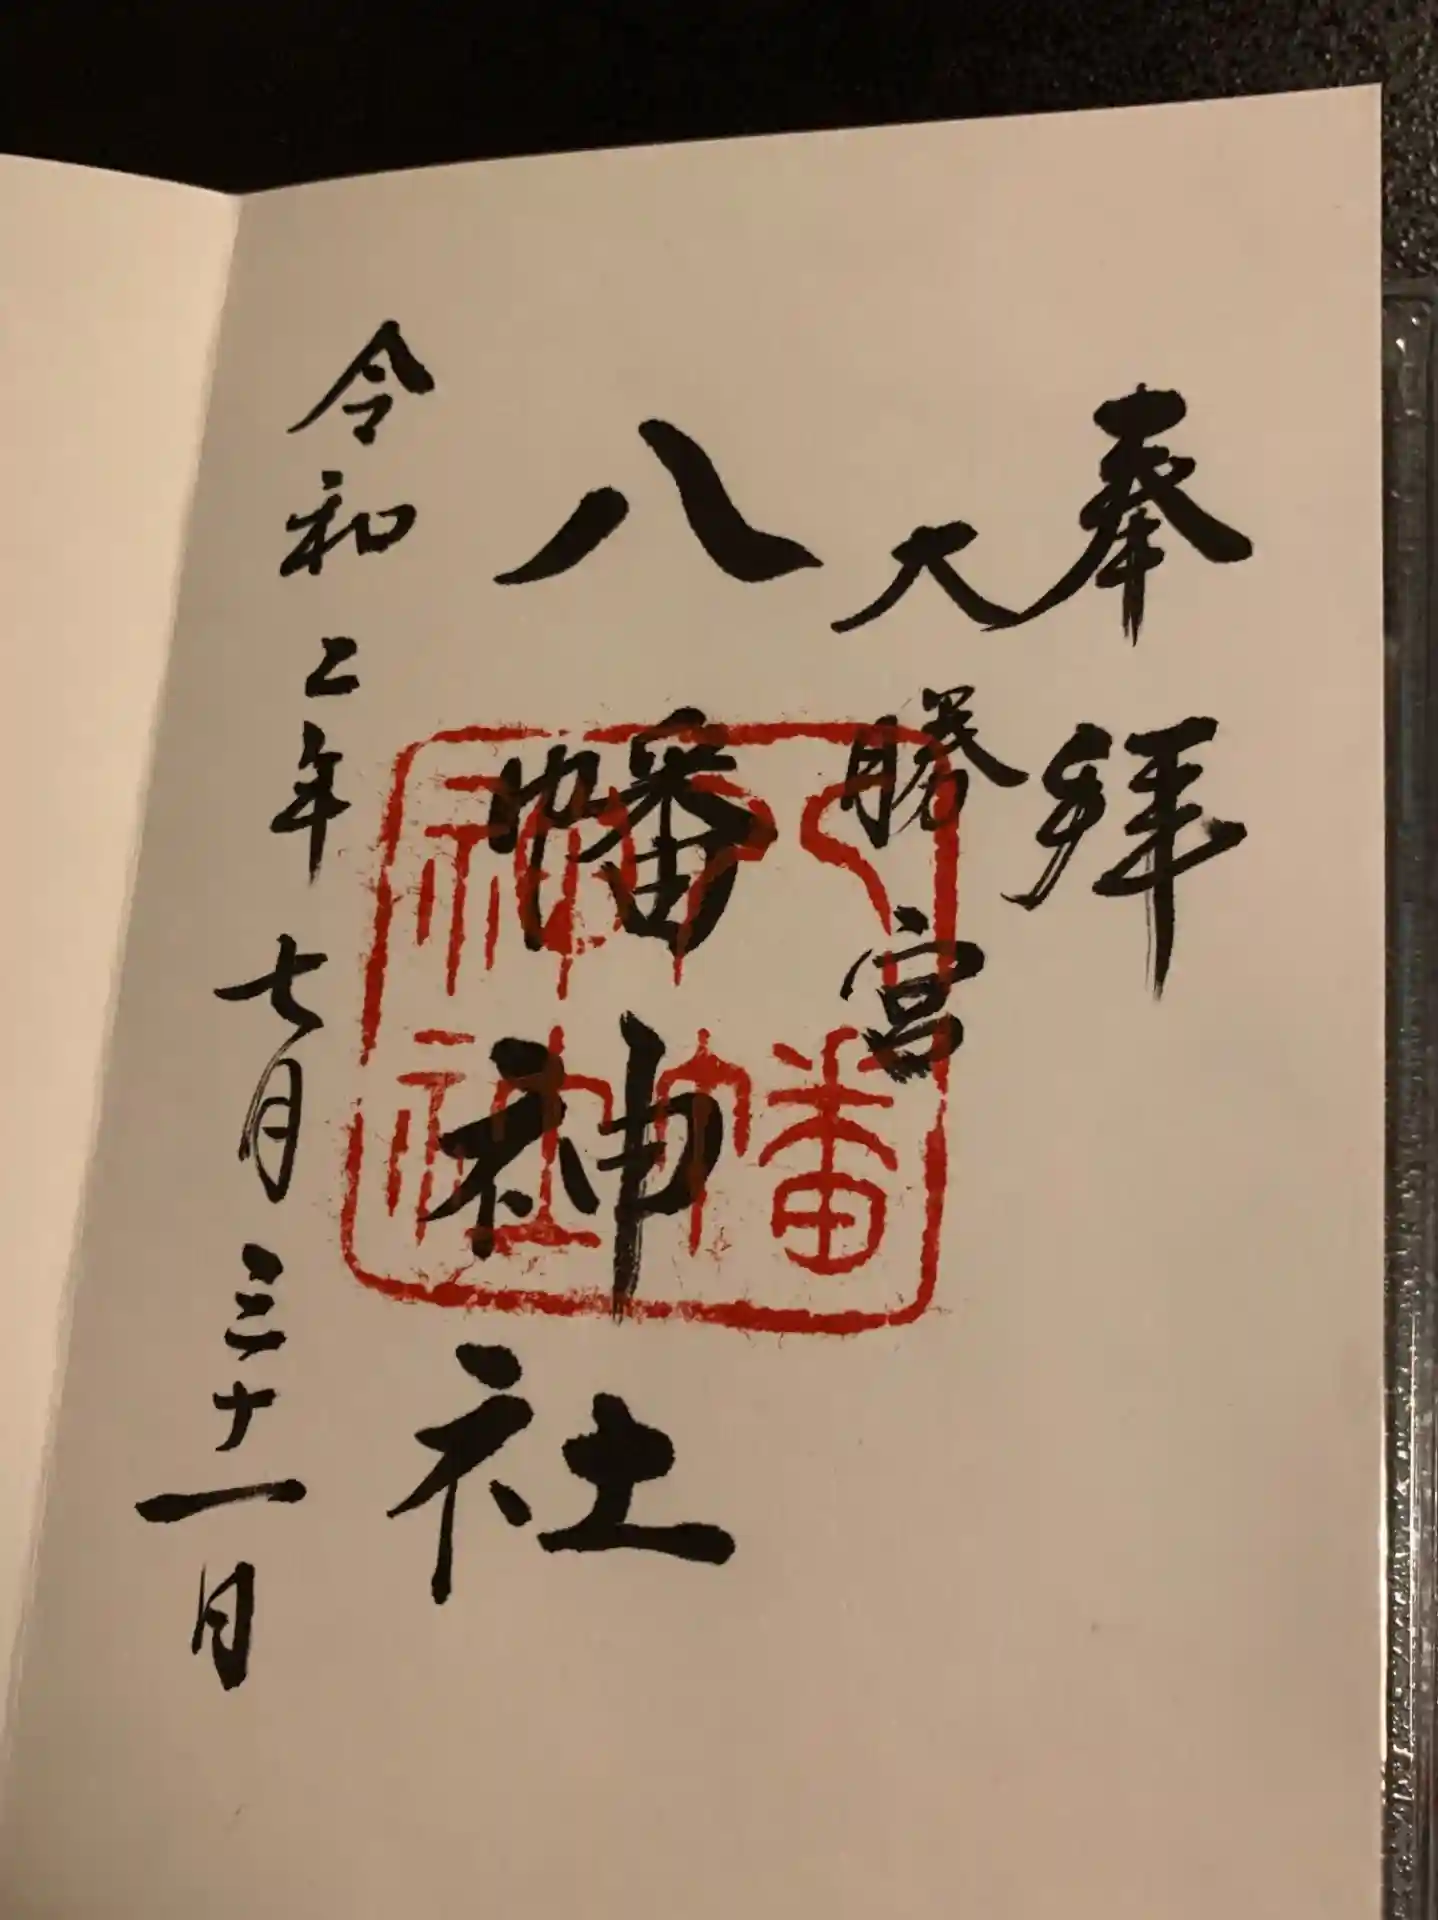 奉拝
大勝宮
八幡神社
令和二年七月三十一日
八幡神社